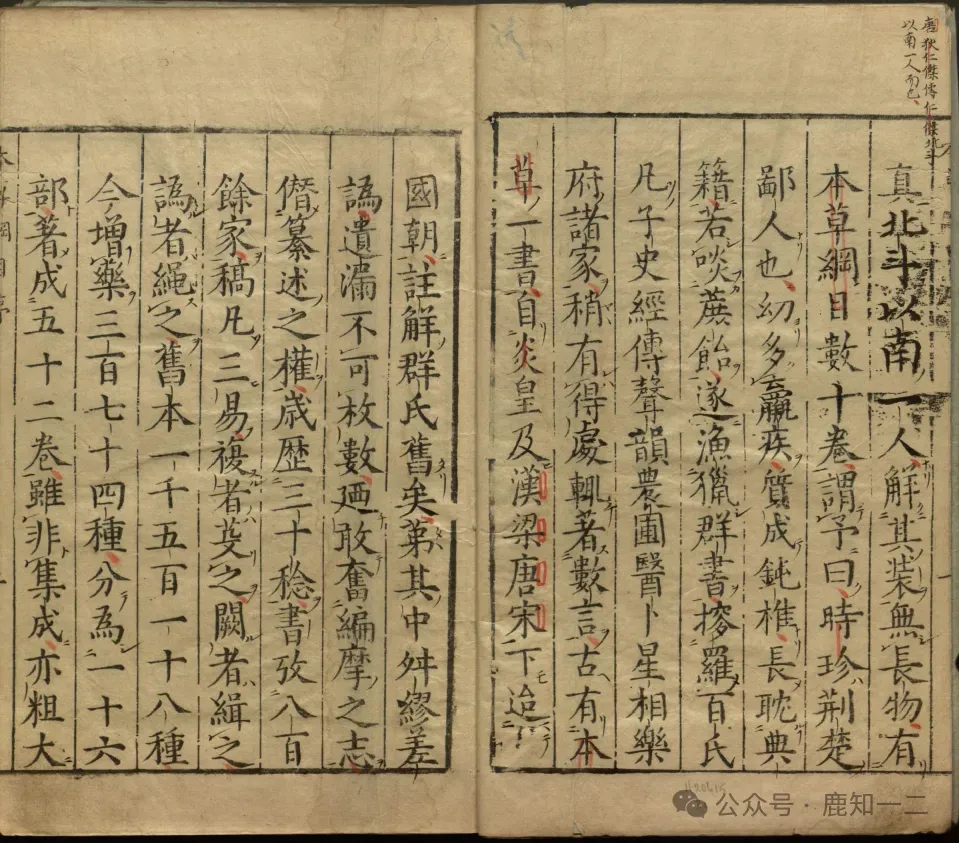 唐狄仁傑傳仁傑北斗
以南一人而已、
真北斗以南一人解其装無長物有
本草綱目數十卷謂予曰時珍荆楚
鄙人也幼多羸疾質成鈍椎長耽典
籍若啖蔗飴遂漁獵群書搜羅百氏
凡子史經傳聲韻農圃醫卜星相樂
府諸家稍有得處輒著數言古有本
草一書自炎皇及漢梁唐宋下迨
國朝註解群氏舊矣第其中舛繆差
譌遺漏不可枚數廼敢奮編摩之志
僭纂述之權歳歴三十稔書攷八百
餘家稿凡三易複者芟之闕者緝之
譌者繩之舊本一千五百一十八種
今增藥三百七十四種分為一十六
部著成五十二卷雖非集成亦粗大
公众号·鹿知一二